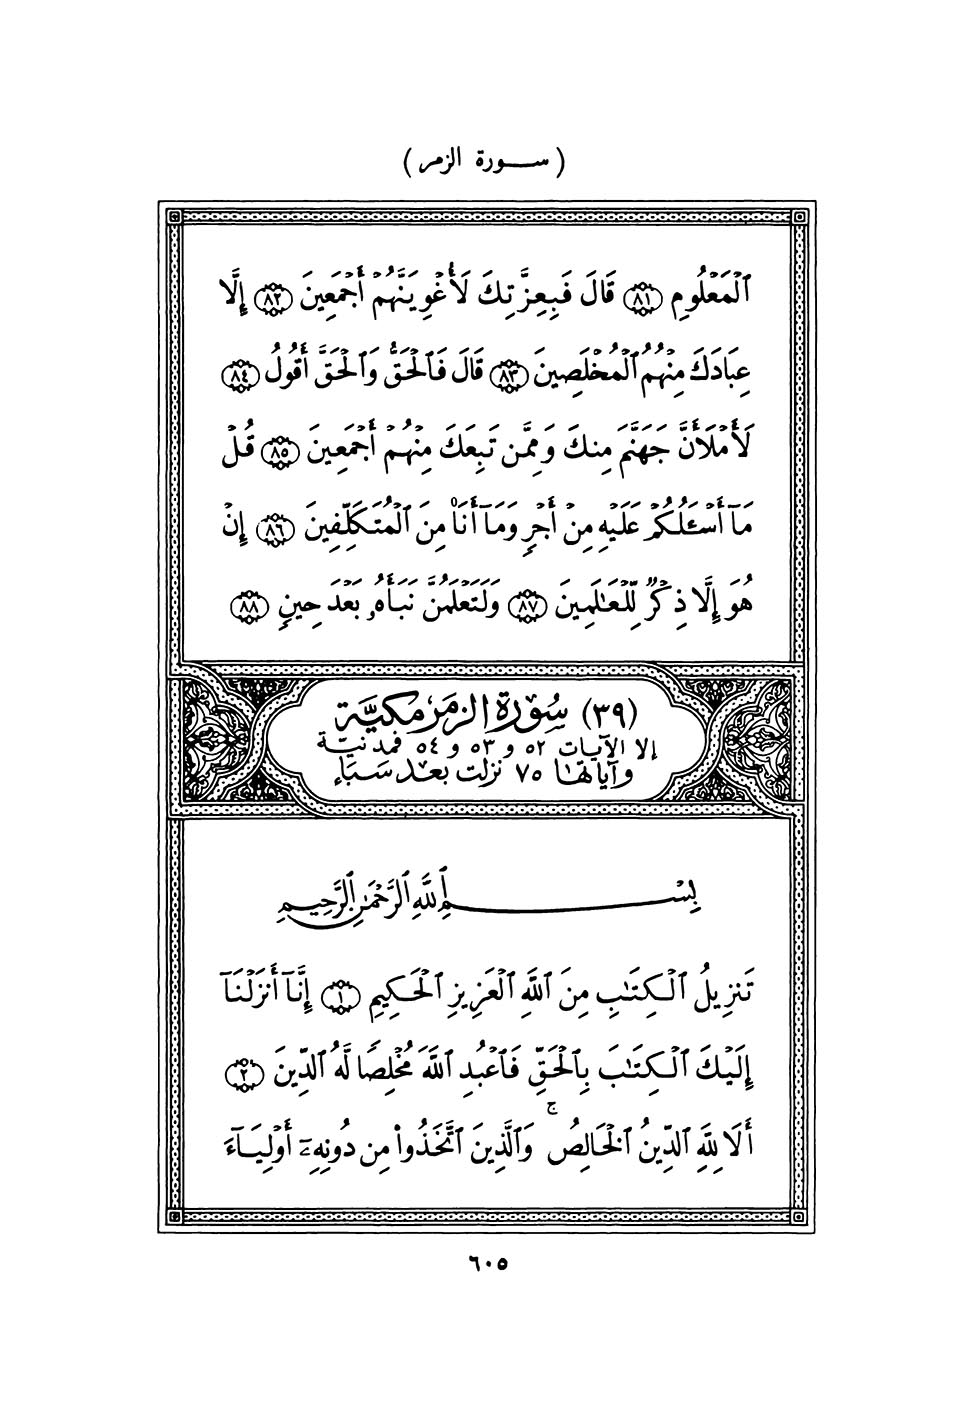 ( ســورة الزمر )
ٱلْمَعْلُومِ ٨١ قَالَ فَبِعِزَّتِكَ لَأُغْوِيَنَّهُمْ أَجْمَعِينَ ٨٢ إِلَّا
عِبَادَكَ مِنْهُمُ ٱلْمُخْلَصِينَ ٨٣ قَالَ فَٱلْحَقُّ وَٱلْحَقَّ أَقُولُ ٨٤
لَأَمْلَأَنَّ جَهَنَّمَ مِنكَ وَمِمَّن تَبِعَكَ مِنْهُمْ أَجْمَعِينَ ٨٥ قُلْ
مَآ أَسْـَٔلُكُمْ عَلَيْهِ مِنْ أَجْرٍ وَمَآ أَنَا۠ مِنَ ٱلْمُتَكَلِّفِينَ ٨٦ إِنْ
هُوَ إِلَّا ذِكْرٌ لِّلْعَـٰلَمِينَ ٨٧ وَلَتَعْلَمُنَّ نَبَأَهُۥ بَعْدَ حِينٍ ٨٨
(٣٩) سُورَة الزمَر مكيَّة
إلا الآيات ٥٢ و ٥٣ و ٥٤ فمدنيَّة
وآياتها ٧٥ نزلت بعد سَبَإ
بِسْمِ ٱللَّهِ ٱلرَّحْمَـٰنِ ٱلرَّحِيمِ
تَنزِيلُ ٱلْكِتَـٰبِ مِنَ ٱللَّهِ ٱلْعَزِيزِ ٱلْحَكِيمِ ١ إِنَّآ أَنزَلْنَآ
إِلَيْكَ ٱلْكِتَـٰبَ بِٱلْحَقِّ فَٱعْبُدِ ٱللَّهَ مُخْلِصًا لَّهُ ٱلدِّينَ ٢
أَلَا لِلَّهِ ٱلدِّينُ ٱلْخَالِصُ ۚ وَٱلَّذِينَ ٱتَّخَذُوا۟ مِن دُونِهِۦٓ أَوْلِيَآءَ
٦٠٥